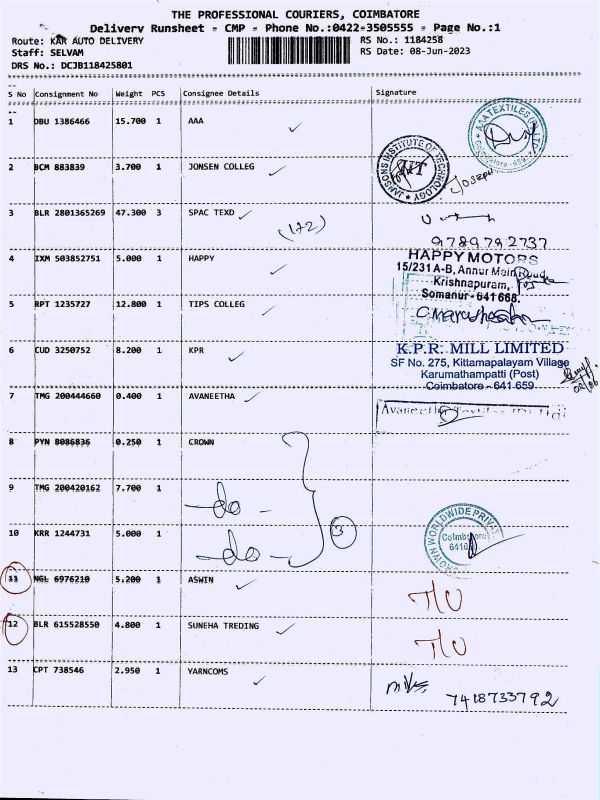 THE PROFESSIONAL COURIERS, COIMBATORE
Delivery Runsheet - CMP - Phone No.:0422-3505555 - Page No.:1
Route: KAR AUTO DELIVERY RS No.: 1184258
Staff: SELVAM RS Date: 08-Jun-2023
DRS No.: DCJB118425801
S No Consignment No Weight PCS Consignee Details Signature
1 DBU 1386466 15.700 1 AAA
AAA TEXTILES (P) LTD
2 BCM 883839 3.700 1 JONSEN COLLEG
JANSONS INSTITUTE OF TECHNOLOGY
JIT
JOSEPH
3 BLR 2801365269 47.300 3 SPAC TEXD
(172)
9789792737
4 IXM 503852751 5.000 1 HAPPY
HAPPY MOTORS
15/231 A-B, Annur Main Road,
Krishnapuram,
Somanur - 641 668.
5 RPT 1235727 12.800 1 TIPS COLLEG
6 CUD 3250752 8.200 1 KPR
K.P.R. MILL LIMITED
SF No. 275, Kittamapalayam Village
Karumathampatti (Post)
Coimbatore - 641 659
7 TMG 200444660 0.400 1 AVANEETHA
8 PYN 8086836 0.250 1 CROWN
9 TMG 200420162 7.700 1
-do-
3
10 KRR 1244731 5.000 1
-do-
CROWN WORLDWIDE PRIVAT
Coimbatore
11 NGL 6976210 5.200 1 ASWIN
T/U
12 BLR 615528550 4.800 1 SUNEHA TREDING
T/U
13 CPT 738546 2.950 1 YARNCOMS
7418733792